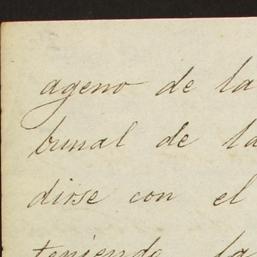 ageno de la
bunal de la
dirse con el
teniendo la